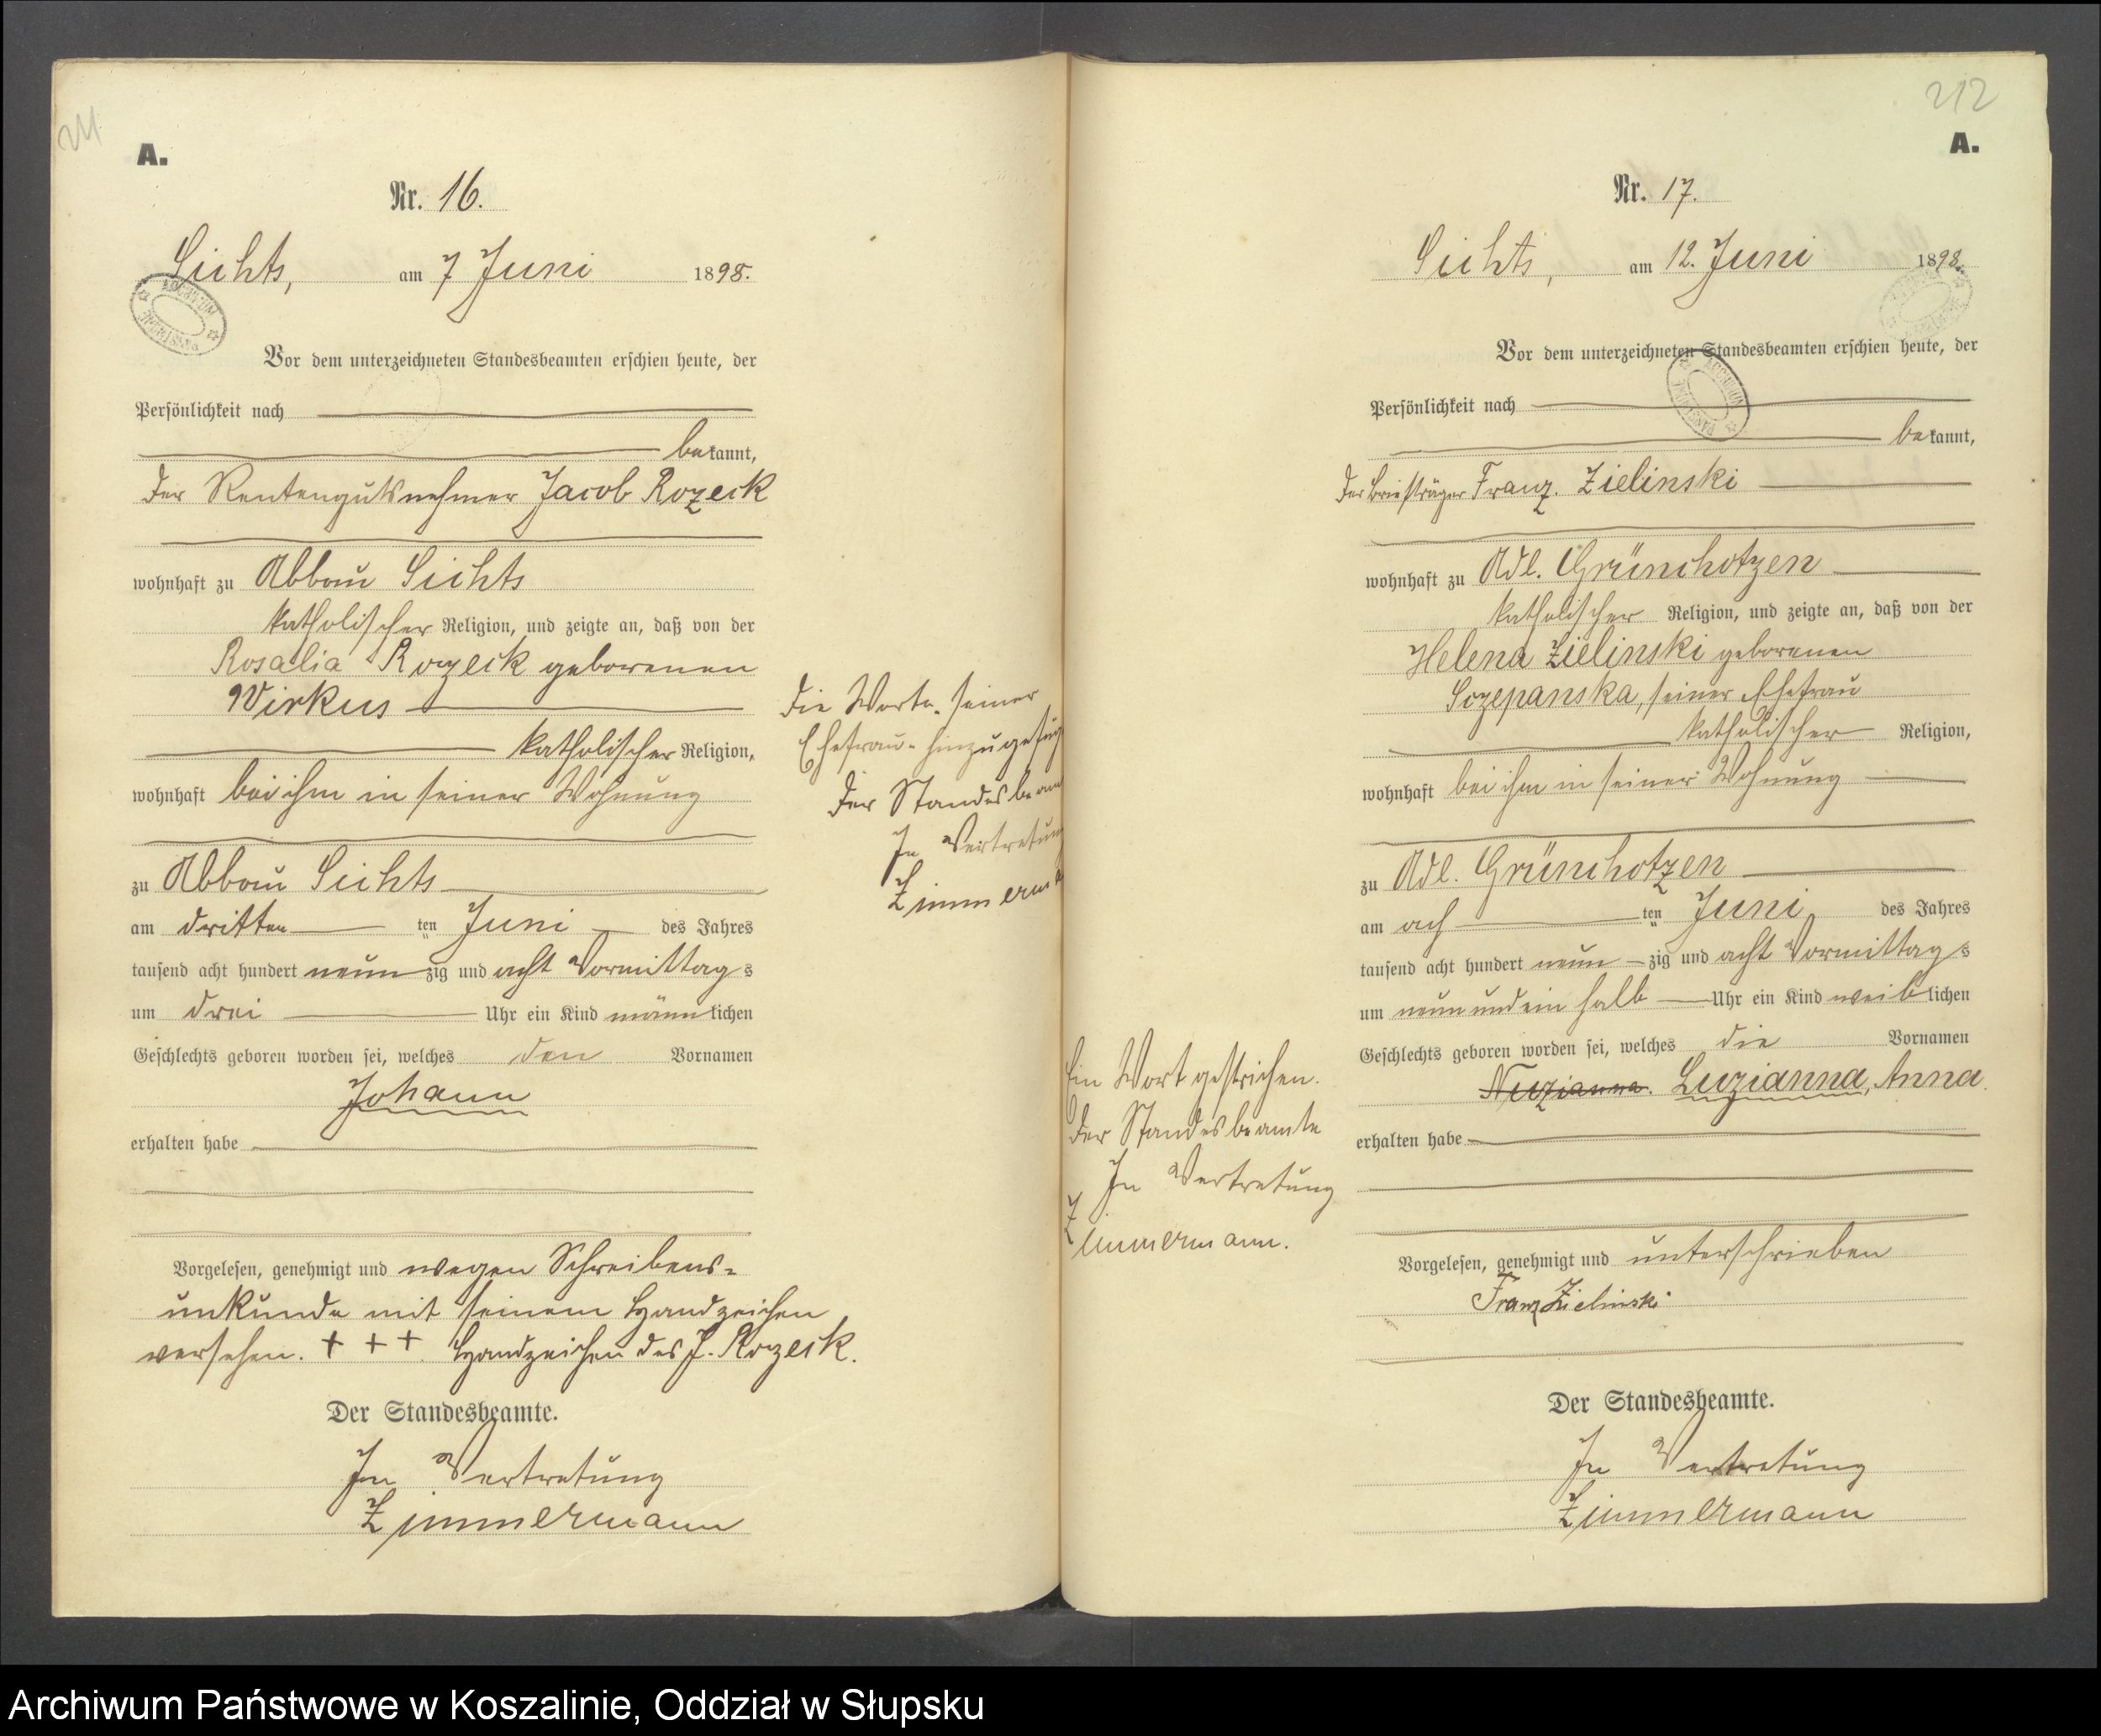 211
A.
Nr. 16.
Sichts, am 7 Juni 1898.
Vor dem unterzeichneten Standesbeamten erschien heute, der
Persönlichkeit nach
bekannt,
der Rentengutsnehmer Jacob Rozeck
wohnhaft zu Abbau Sichts
katholischer Religion, und zeigte an, daß von der
Rosalia Rozeck geborenen
Wirkus
katholischer Religion,
wohnhaft bei ihm in seiner Wohnung
zu Abbau Sichts
am dritten ten Juni des Jahres
tausend acht hundert neunzig und acht Vormittags
um drei Uhr ein Kind männlichen
Geschlechts geboren worden sei, welches den Vornamen
Johann
erhalten habe
Vorgelesen, genehmigt und wegen Schreibens-
unkunde mit seinem Handzeichen
versehen. + + + Handzeichen des J. Rozeck.
Der Standesbeamte.
In Vertretung
Zimmermann
Die Worte "seiner
Ehefrau" hinzugefüg
Der Standesbeam
In Vertretung
Zimmerma
212
A.
Nr. 17.
Sichts, am 12. Juni 1898.
Vor dem unterzeichneten Standesbeamten erschien heute, der
Persönlichkeit nach
bekannt,
der Briefträger Franz Zielinski
wohnhaft zu Adl. Grünchotzen
katholischer Religion, und zeigte an, daß von der
Helena Zielinski geborenen
Sczepanska, seiner Ehefrau
katholischer Religion,
wohnhaft bei ihm in seiner Wohnung
zu Adl. Grünchotzen
am ach ten Juni des Jahres
tausend acht hundert neunzig und acht Vormittags
um neun und ein halb Uhr ein Kind weiblichen
Geschlechts geboren worden sei, welches die Vornamen
Luzianna, Anna
erhalten habe
Vorgelesen, genehmigt und unterschrieben
Franz Zielinski
Der Standesbeamte.
In Vertretung
Zimmermann
Ein Wort gestrichen.
Der Standesbeamte
In Vertretung
Zimmermann.
Archiwum Państwowe w Koszalinie, Oddział w Słupsku